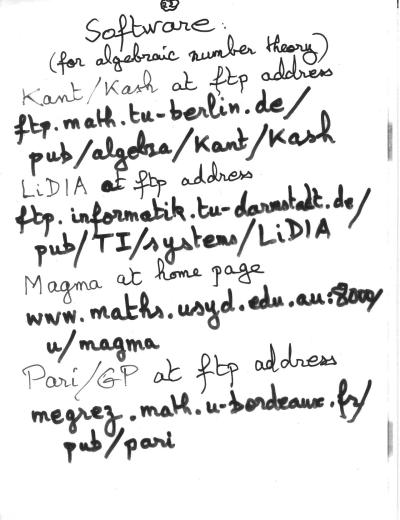 22
Software:
(for algebraic number theory)
Kant/Kash at ftp address
ftp.math.tu-berlin.de/
pub/algebra/Kant/Kash
LiDIA at ftp address
ftp.informatik.tu-darmstadt.de/
pub/TI/systems/LiDIA
Magma at home page
www.maths.usyd.edu.au:8000/
u/magma
Pari/GP at ftp address
megrez.math.u-bordeaux.fr/
pub/pari